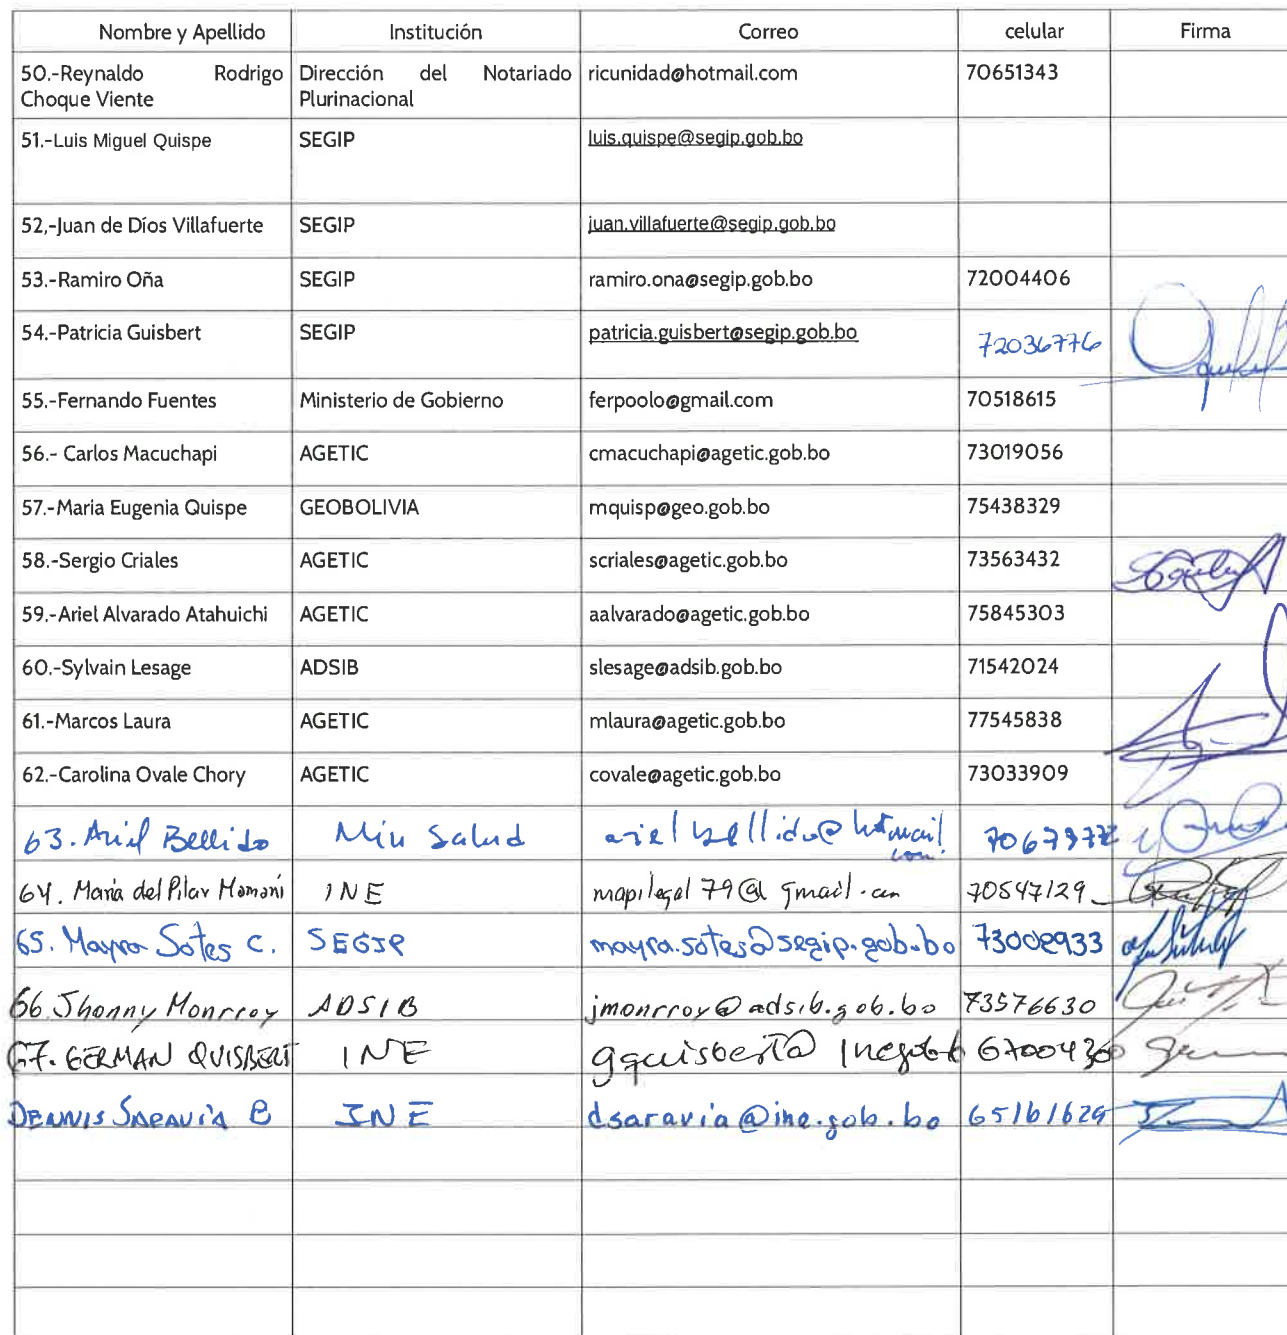 Nombre y Apellido Institución Correo celular Firma
50.-Reynaldo Rodrigo Dirección del Notariado ricunidad@hotmail.com 70651343
Choque Viente Plurinacional
51.-Luis Miguel Quispe SEGIP luis.quispe@segip.gob.bo
52,-Juan de Díos Villafuerte SEGIP juan.villafuerte@segip.gob.bo
53.-Ramiro Oña SEGIP ramiro.ona@segip.gob.bo 72004406
54.-Patricia Guisbert SEGIP patricia.guisbert@segip.gob.bo 72036776
55.-Fernando Fuentes Ministerio de Gobierno ferpoolo@gmail.com 70518615
56.- Carlos Macuchapi AGETIC cmacuchapi@agetic.gob.bo 73019056
57.-Maria Eugenia Quispe GEOBOLIVIA mquisp@geo.gob.bo 75438329
58.-Sergio Criales AGETIC scriales@agetic.gob.bo 73563432
59.-Ariel Alvarado Atahuichi AGETIC aalvarado@agetic.gob.bo 75845303
60.-Sylvain Lesage ADSIB slesage@adsib.gob.bo 71542024
61.-Marcos Laura AGETIC mlaura@agetic.gob.bo 77545838
62.-Carolina Ovale Chory AGETIC covale@agetic.gob.bo 73033909
63. Ariel Bellido Min Salud ariel bellido@hotmail
com
64. Maria del Pilar Mamani INE mapilegal79@gmail.com 70547129
65. Mayra Sotes C. SEGIP mayra.sotes@segip.gob.bo 73008933
66. Jhonny Monrroy ADSIB jmonrroy@adsib.gob.bo 73576630
67. GERMAN QUISBERT INE gquisbert@
DENNIS SARAVIA B INE dsaravia@ine.gob.bo 65161629